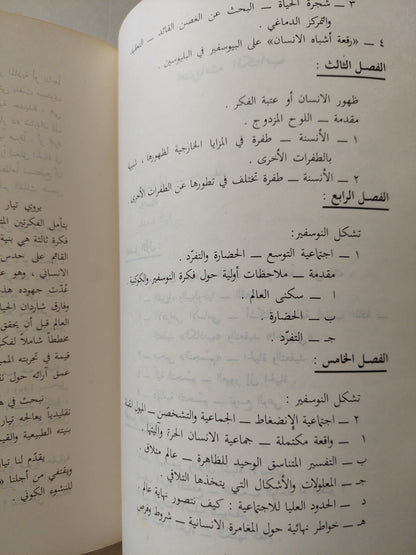 ٣ — شجرة الحياة — البحث عن الغصن القائد — التعقيد
والتمركز الدماغي .
٤ — «رقعة أشباه الانسان» على البيوسفير في البليوسين .
الفصل الثالث :
ظهور الانسان أو عتبة الفكر .
مقدمة — اللوح المزدوج .
١ — الأنسنة — طفرة في المزايا الخارجية لظهورها ،
بالطفرات الأخرى .
٢ — الأنسنة — طفرة تختلف في تطورها عن الطفرات الأخرى .
الفصل الرابع :
تشكل النوسفير:
١ — اجتماعية التوسع — الحضارة والتفرّد .
مقدمة — ملاحظات أولية حول فكرة النوسفير والكوكبية
١ — سكنى العالم .
ب — الحضارة .
جـ — التفرّد .
الفصل الخامس :
تشكل النوسفير:
٢ — اجتماعية الإنضغاط — الجماعية والتشخصن — الميول
١ — واقعة مكتملة — جماعية الانسان الحرة وآليتها .
ب — التفسير المتناسق الوحيد للظاهرة — عالم متلاقٍ .
جـ — المعلولات والأشكال التي يتخذها التلاقي .
د — الحدود العليا للاجتماعية : كيف نتصور نهاية عالم .
هـ — خواطر نهائية حول المغامرة الانسانية — شروط وفرص
يروي تيار
يتأمل الفكرتين
فكرة ثالثة هي بنية
القائم على حدس
الانساني ، وهو
عُدّت جهوده
وفارق شاردان الحياة
العالم قبل أن يحقق
مخططاً شاملاً لفكر
قيمة في تجربته
عمق آرائه حول
نبحث في
تقليدياً يعالجه تيار
بنيته الطبيعية والقيم
يقدّم لنا تيار
ويقتفي من أجلنا
للنشوء الكوني .